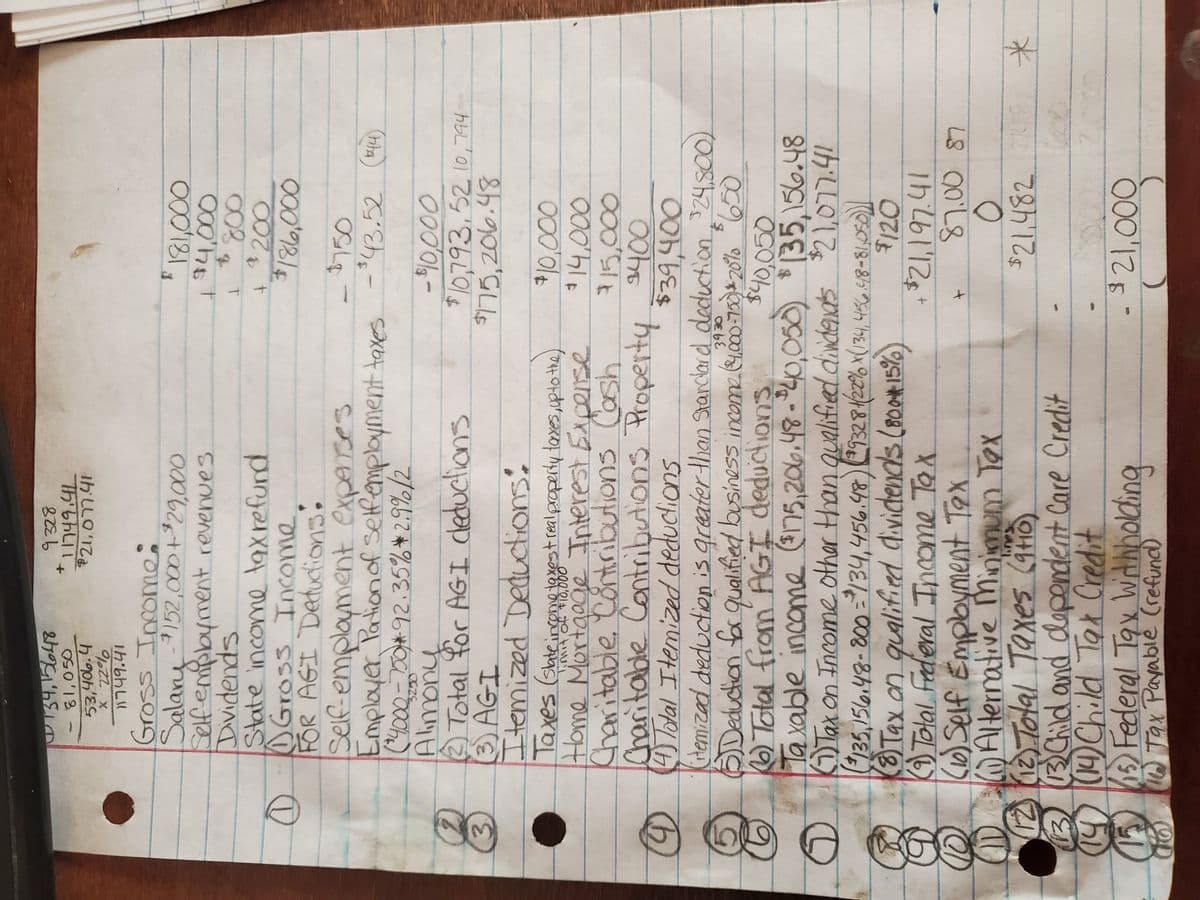 134,15648
- 81,050
53,406.4
x 22%
11749.41
9328
+ 11749.41
$21,077.41
Gross Income:
Salary - $152,000 + $29,000 $181,000
Self-employment revenues + $4,000
Dividends + $800
State income tax refund + $200
① (1) Gross Income $186,000
FOR AGI Deductions:
Self-employment expenses - $750
Employer Portion of self-employment taxes - $43.52 (44)
($4000-750)*92.35%*2.9%/2
3250
Alimony - $10,000
② (2) Total for AGI deductions $10,793.52 10,794
③ (3) AGI $175,206.48
Itemized Deductions:
Taxes (state income taxes + real property taxes, up to the) $10,000
limit of $10,000
Home Mortgage Interest Expense $14,000
Charitable Contributions Cash $15,000
Charitable Contributions Property $400
④ (4) Total Itemized deductions $39,400
(itemized deduction is greater than Standard deduction $24,800)
3930
⑤ (5) Deduction for qualified business income ($4,000-750)*20% $650
⑥ (6) Total from AGI deductions $40,050
Taxable income ($175,206.48-$40,050) $135,156.48
⑦ (7) Tax on Income other than qualified dividends $21,077.41
($135,156.48-800=$134,456.48) ($9328+(22%x(134,456.48-81,050))
⑧ (8) Tax on qualified dividends (800*15%) $120
⑨ (9) Total Federal Income Tax + $21,197.41
⑩ (10) Self Employment Tax + 87.00 87
⑪ (11) Alternative Minimun Tax 0
lines
⑫ (12) Total Taxes (9+10) $21,482 *
⑬ (13) Child and dependent Care Credit -
⑭ (14) Child Tax Credit -
⑮ (15) Federal Tax Withholding - $21,000
⑯ (16) Tax Payable (refund) ( )